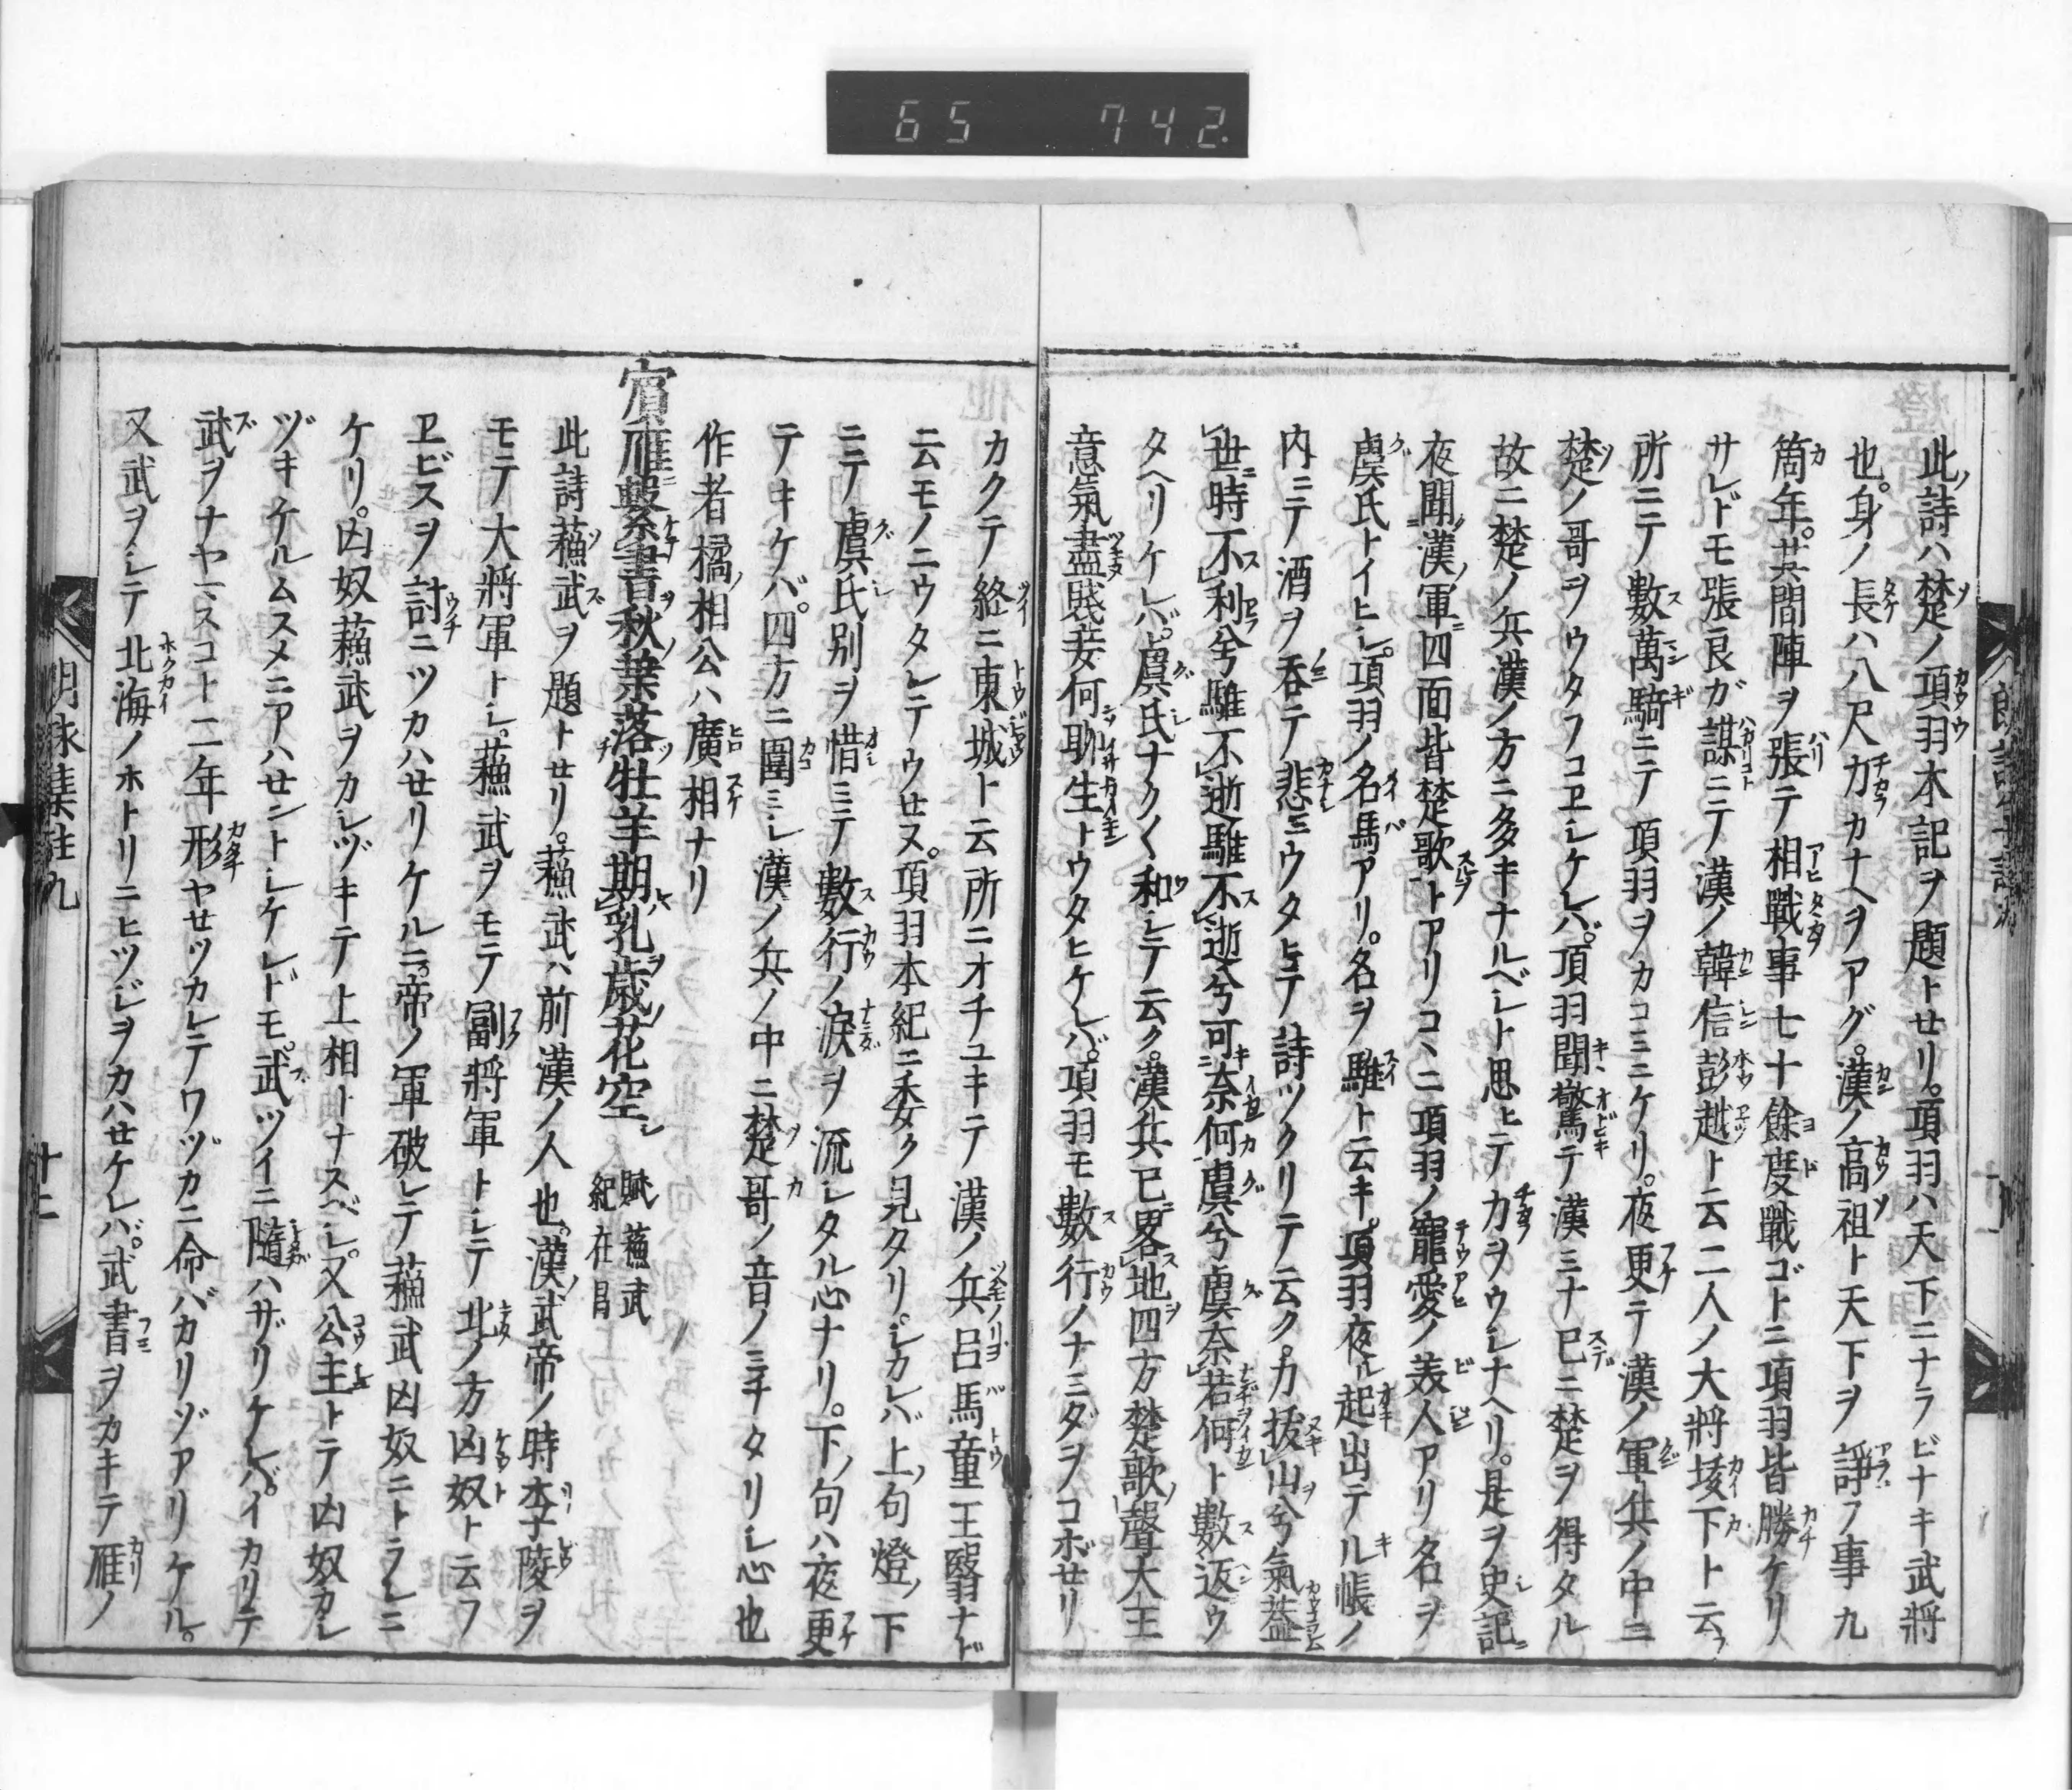 65 742.
此詩ハ楚ノ項羽本記ヲ題トせリ。項羽ハ天下ニナラビナキ武將
也。身ノ長ハ八尺力カナヘヲアグ。漢ノ高祖ト天下ヲ諍フ事九
箇年。其間陣ヲ張テ相戰事七十餘度戰ゴトニ項羽皆勝ケリ
サレドモ張良ガ謀ニテ漢ノ韓信彭越ト云二人ノ大將垓下ト云
所ニテノ數萬騎ニテ項羽ヲカコミニケリ。夜更テ漢ノ軍兵ノ中ニ
楚ノ哥ヲウタフコヱシケレバ。項羽聞驚テ漢ミナ已ニ楚ヲ得タル
故ニ楚ノ兵漢ノ方ニ多キナルベシト思ヒテカヲウシナヘリ。是ヲ史記ニ
夜聞漢軍四面皆楚歌トアリコヽニ項羽ノ寵愛ノ美人アリ名ヲ
虞氏トイヒシ。項羽ノ名馬アリ。名ヲ騅ト云キ。項羽夜ル起出テル帳ノ
内ニテ酒ヲ呑テ悲ミウタヒテ詩ツクリテ云ク。力拔山兮氣蓋
世時不利兮騅不逝騅不逝兮可柰何虞兮虞奈若何ト數返ウ
タヘリケレバ。虞氏ナク〱和シテ云ク。漢兵已畧地四方楚歌聲大王
意氣盡賤妾何聊生トウタヒケレバ。項羽モ數行ノナミダヲコボせリ
カクテ終ニ東城ト云所ニオチユキテ漢ノ兵呂馬童王翳ナド
云モノニウタレテウせヌ。項羽本紀ニ委ク見タリ。シカレバ上ノ句燈ノ下
ニテ虞氏別ヲ惜ミテ數行ノ淚ヲ流シタル心ナリ。下ノ句ハ夜更
テキケバ。四方ニ圍ミシ漢ノ兵ノ中ニ楚哥ノ音ノミキタリシ心也
作者橘ノ相公ハ廣相ナリ
賓雁繫書秋葉落牡羊期乳歳花空 賦蘓武 紀在昌
此詩蘓武ヲ題トせリ。蘓武ハ前漢ノ人也。漢ノ武帝ノ時李陵ヲ
モテ大將軍トシ。蘓武ヲモテ副將軍トシテ北ノ方凶奴ト云フ
ヱビスヲ討ニツカハせリケルニ。帝ノ軍破レテ蘓武凶奴ニトラレニ
ケリ。凶奴蘓武ヲカシヅキテ上相トナスベシ。又公主トテ凶奴カシ
ヅキケルムスメニアハせントシケレドモ。武ツイニ隨ハザリケレバ。イカリテ
武ヲナヤマスコト二年形ヤせツカレテワヅカニ命バカリゾアリケル。
又武ヲシテ北海ノホトリニヒツジヲカハせケレバ。武書ヲカキテ雁ノ
朗詠集註九
十二